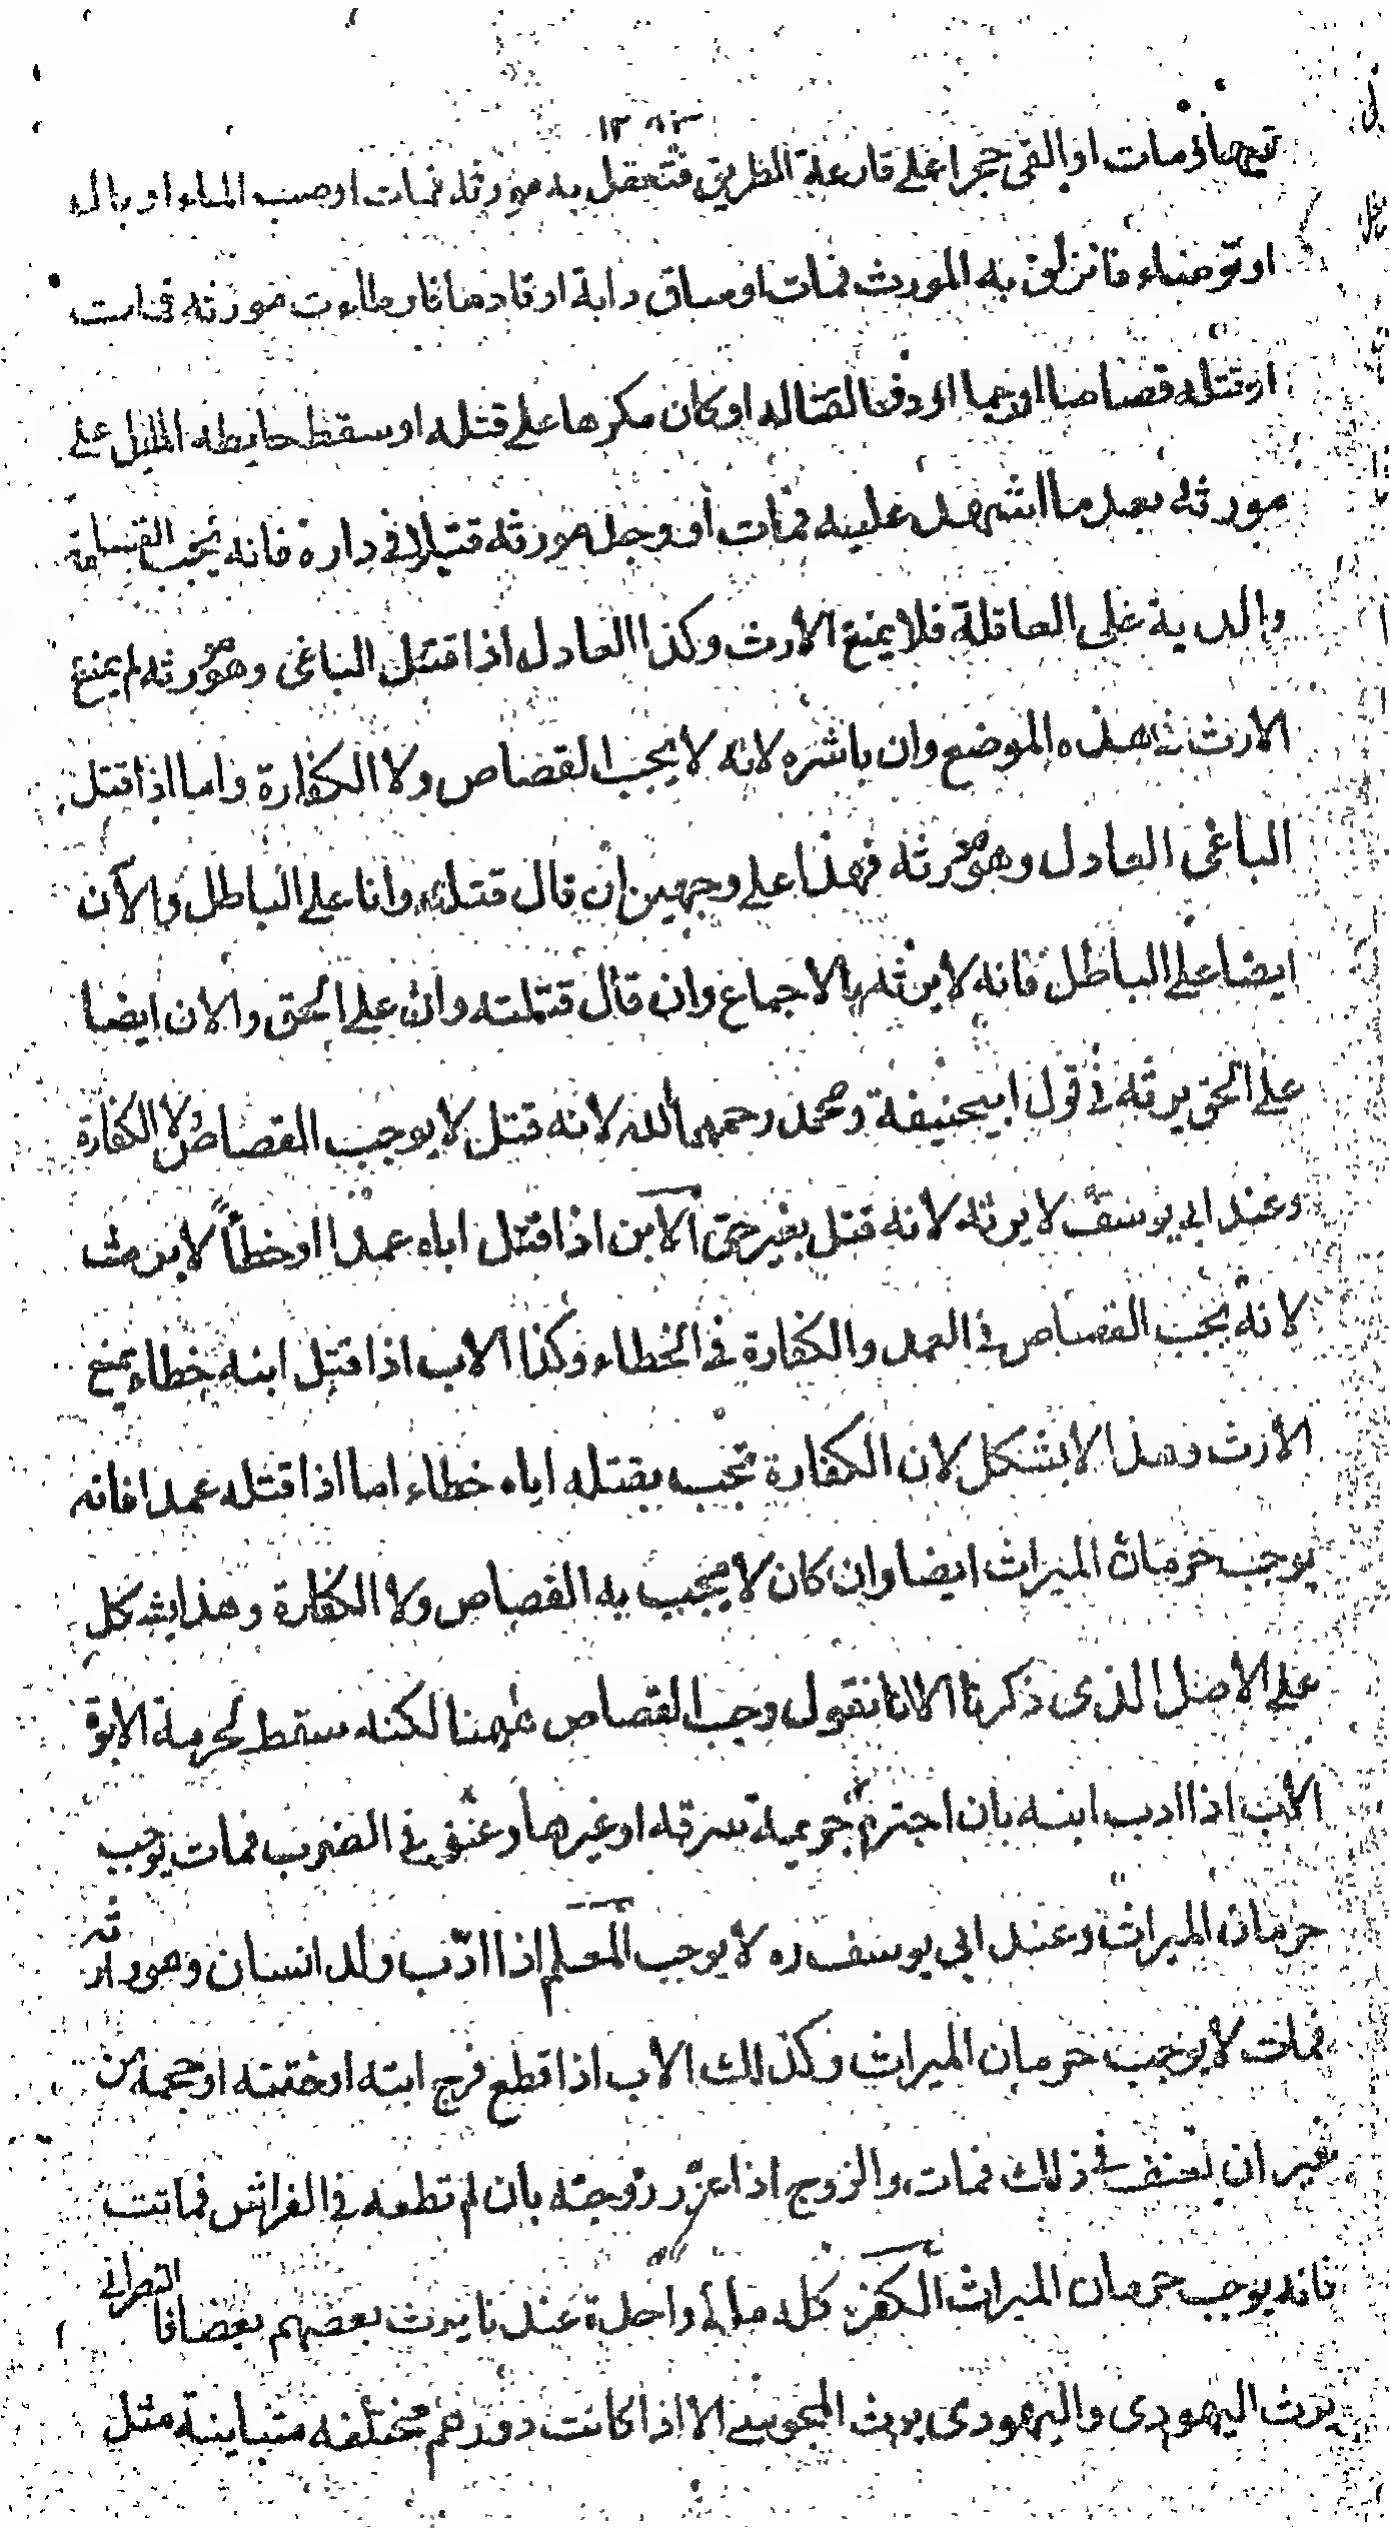 فيها ومات او القى حجرا على قارعة الطريق فتعقل به مورثه فمات او صب الماء او باله
او توضاء فانزلق به المورث فمات او ساق دابة او قادها فاوطاءت مورثه فمات
او قتله قصاصا او رجما او دفعا لقتاله او كان مكرها على قتله او سقط حايطه المايل على
مورثه بعد ما اشهد عليه فمات او وجد مورثه قتيلا في داره فانه يجب القسامة
والدية على العاقلة فلا يمنع الارث وكذا العادل اذا قتل الباغى وهو مورثه لم يمنع
الارث هذه الموضع وان باشره لانه لا يجب القصاص ولا الكفارة واما اذا قتل
الباغى العادل وهو مورثه فهذا على وجهين ان قال قتلته وانا على الباطل والآن
ايضا على الباطل فانه لا يرثه بالاجماع وان قال قتلته وانا على الحق والان ايضا
على الحق يرثه في قول ابيحنيفة ومحمد رحمهما الله لانه قتل لا يوجب القصاص ولا الكفارة
وعند ابي يوسف لا يرثه لانه قتل بغير حق الابن اذا قتل اباه عمدا او خطأً لا يرث
لانه يجب القصاص في العمد والكفارة في الخطاء وكذا الاب اذا قتل ابنه خطاء يمنع
الارث وهذا لا يشكل لان الكفارة تجب بقتله اياه خطاء اما اذا قتله عمدا فانه
يوجب حرمان الميراث ايضا وان كان لا يجب به القصاص ولا الكفارة وهذا يشكل
على الاصل الذى ذكرنا الا انا نقول وجب القصاص ههنا لكنه سقط لحرمة الابوة
الاب اذا ادب ابنه بان اجترم جريمة سرقه او غيرها وعنف في الضرب فمات يوجب
حرمان الميراث وعند ابي يوسف ره لا يوجب المعلم اذا ادّب ولد انسان وهو وارثه
فمات لا يوجب حرمان الميراث وكذالك الاب اذا قطع فرج ابنه او ختنه او حجمه من
غير ان تعنف في ذلك فمات والزوج اذا عزّر زوجته بان لم تطعه في الفراش فماتت
فانه يوجب حرمان الميراث الكفر كله ملة واحدة عندنا يرث بعضهم بعضا فالنصرانى
يرث اليهودى واليهودى يرث المجوسى الا اذا كانت دورهم مختلفه متباينة مثل